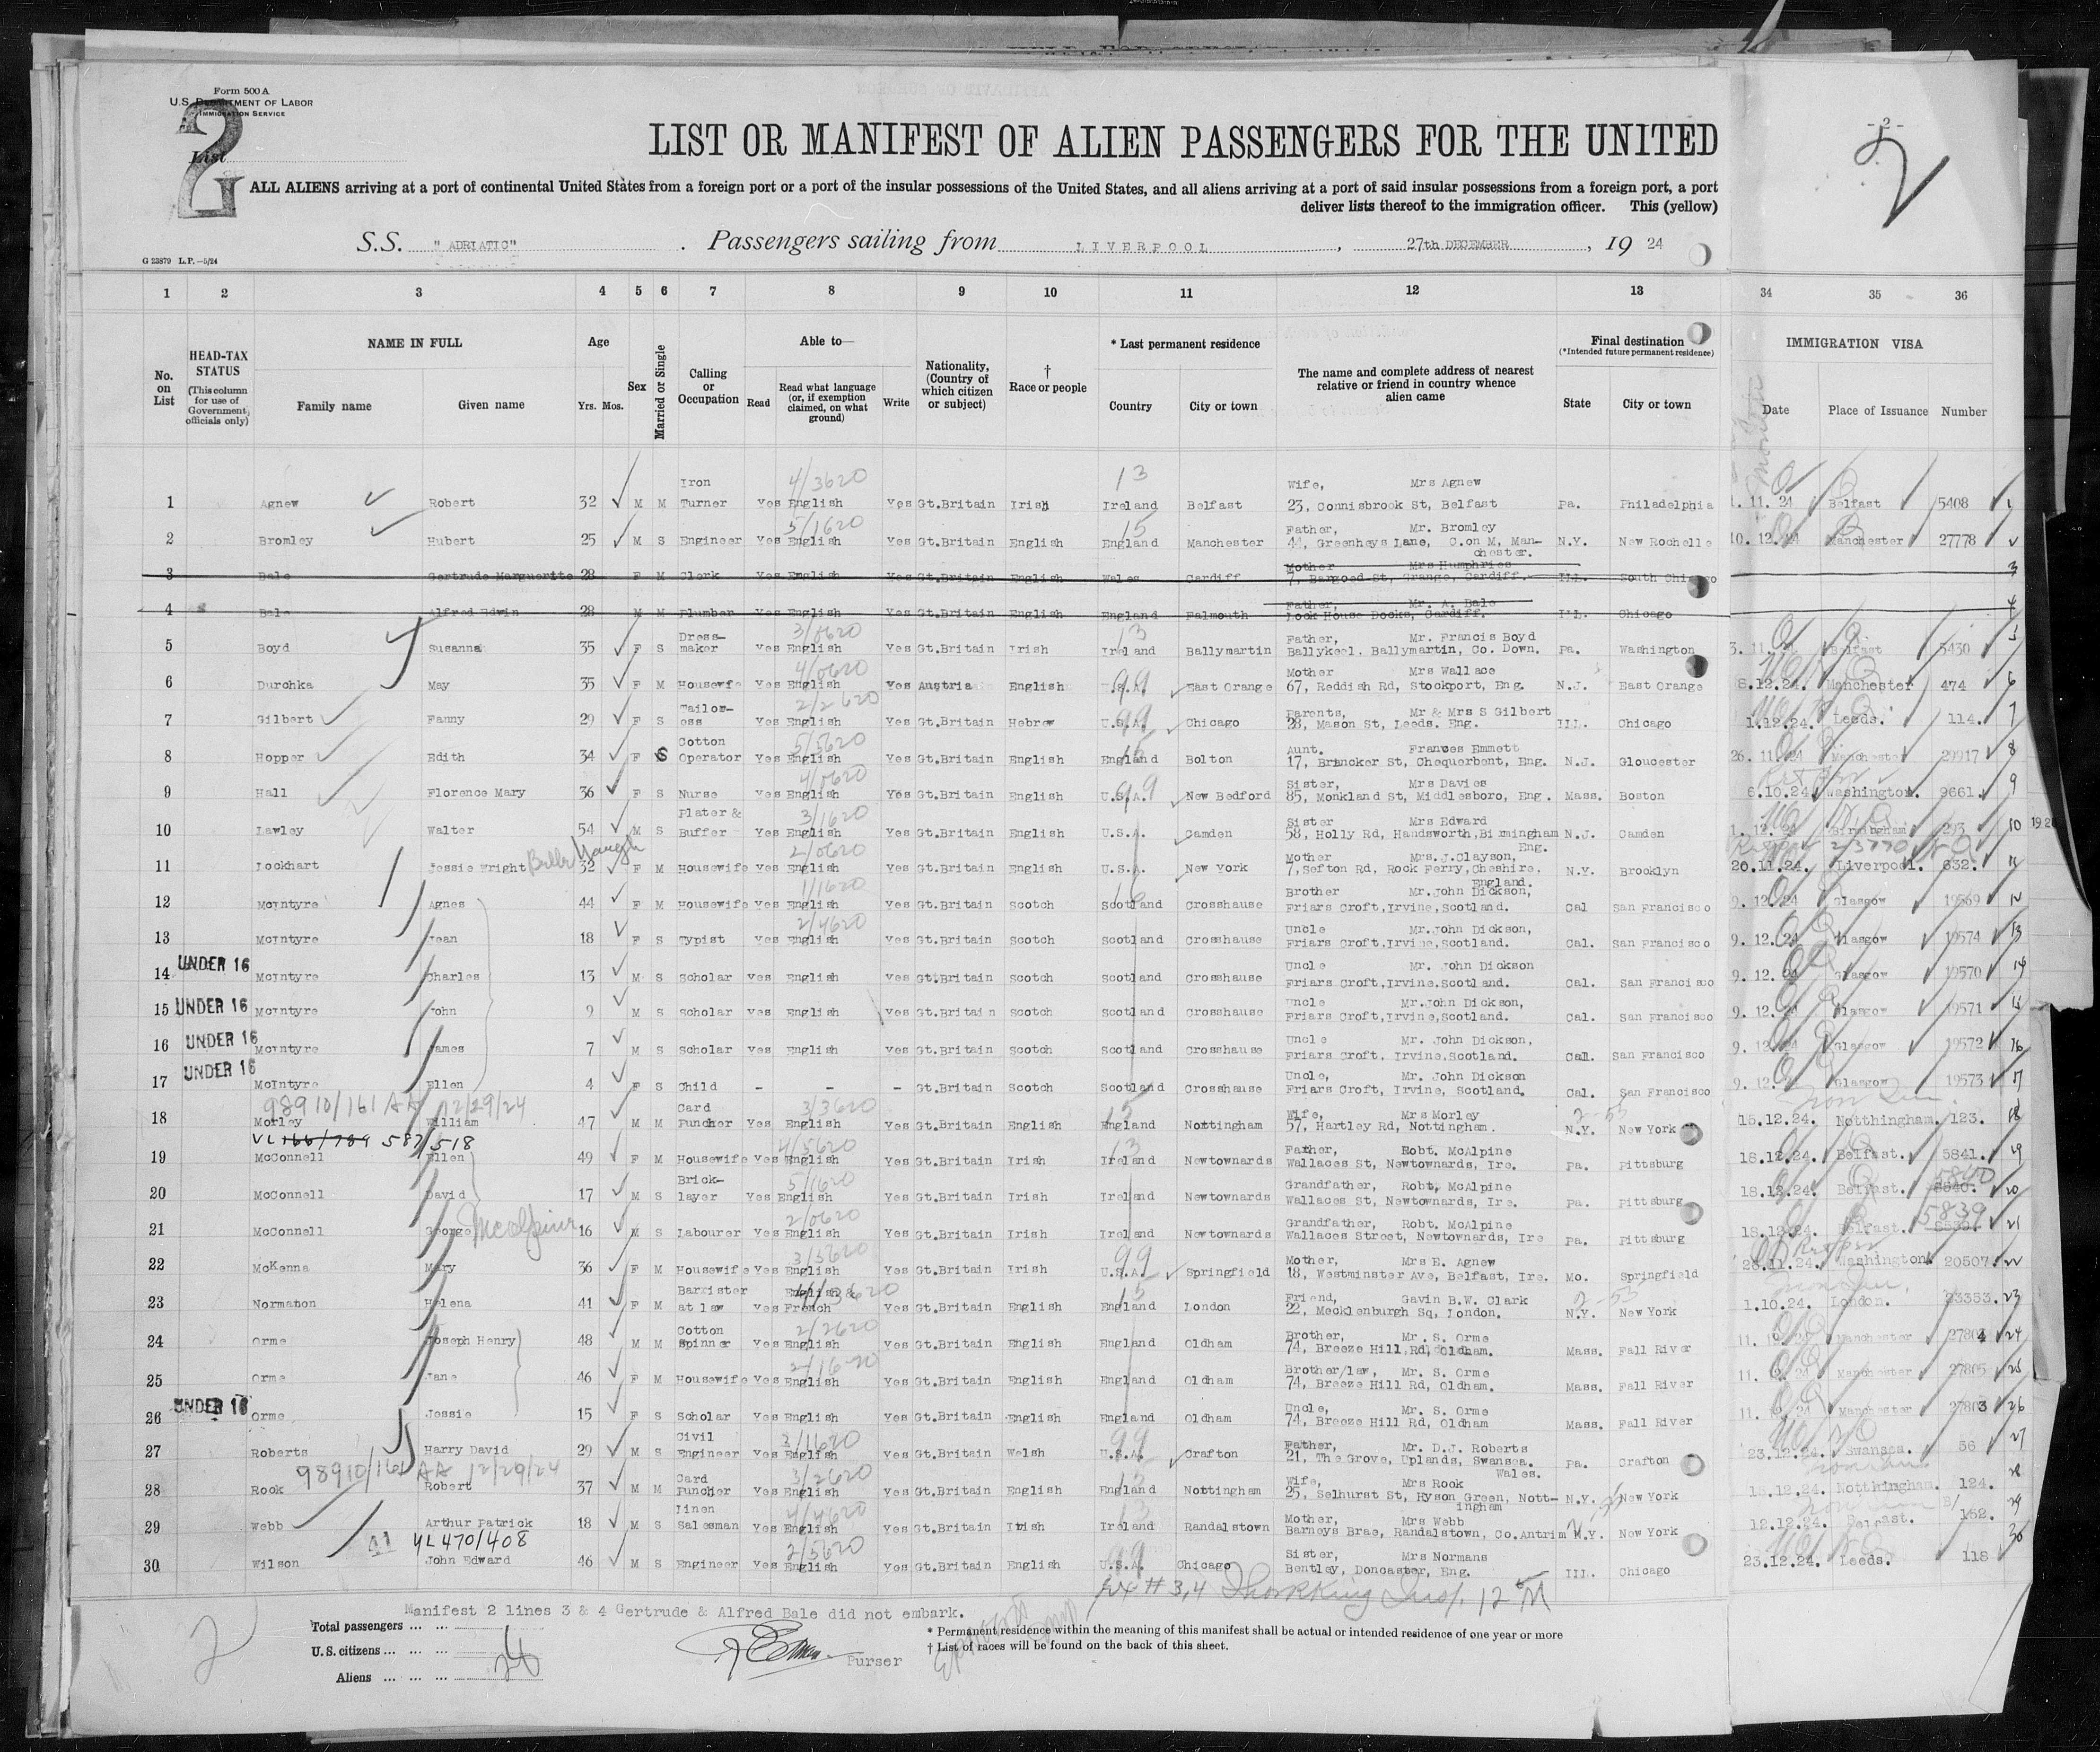 Form 500 A
U.S. DEPARTMENT OF LABOR
IMMIGRATION SERVICE
2
List
- 2 -
2
LIST OR MANIFEST OF ALIEN PASSENGERS FOR THE UNITED
ALL ALIENS arriving at a port of continental United States from a foreign port or a port of the insular possessions of the United States, and all aliens arriving at a port of said insular possessions from a foreign port, a port
deliver lists thereof to the immigration officer. This (yellow)
S.S. "ADRIATIC" . Passengers sailing from LIVERPOOL , 27th DECEMBER , 19 24
G 23879 L.P.—5/24
1 2 3 4 5 6 7 8 9 10 11 12 13 34 35 36
No. on List
HEAD-TAX STATUS (This column for use of Government officials only)
NAME IN FULL
Family name Given name
Age
Yrs. Mos.
Sex
Married or Single
Calling or Occupation
Able to—
Read Read what language (or, if exemption claimed, on what ground) Write
Nationality, (Country of which citizen or subject)
† Race or people
* Last permanent residence
Country City or town
The name and complete address of nearest relative or friend in country whence alien came
Final destination
(*Intended future permanent residence)
State City or town
IMMIGRATION VISA
Date Place of Issuance Number
Iron 4/3620 13 Wife, Mrs Agnew
1 Agnew Robert 32 M M Turner Yes English Yes Gt.Britain Irish Ireland Belfast 23, Connisbrook St, Belfast Pa. Philadelphia 1. 11. 24 Belfast 5408 1
5/1620 15 Father, Mr. Bromley
2 Bromley Hubert 25 M S Engineer Yes English Yes Gt.Britain English England Manchester 44, Greenheys Lane, C.on M, Man- N.Y. New Rochelle 10. 12. 24 Manchester 27778
chester.
Mother Mrs Humphries
3 Bale Gertrude Marguerite 28 F M Clerk Yes English Yes Gt.Britain English Wales Cardiff 7, Bargoed St, Grange, Cardiff. ILL. South Chicago 3
Father, Mr. A. Bale
4 Bale Alfred Edwin 28 M M Plumber Yes English Yes Gt.Britain English England Falmouth Lock House Docks, Cardiff. ILL. Chicago 4
Dress- 3/0620 13 Father, Mr. Francis Boyd
5 Boyd Susanna 35 F S maker Yes English Yes Gt.Britain Irish Ireland Ballymartin Ballykeel. Ballymartin, Co. Down. Pa. Washington 3. 11. 24 Belfast 5430 5
4/0620 99 Mother Mrs Wallace
6 Durchka May 35 F M Housewife Yes English Yes Austria English U.S.A. East Orange 67, Reddish Rd, Stockport, Eng. N.J. East Orange 8.12.24. Manchester 474 6
Tailor- 2/2620 99 Parents, Mr & Mrs S Gilbert
7 Gilbert Fanny 29 F S ess Yes English Yes Gt.Britain Hebrew U.S.A. Chicago 28, Mason St, Leeds. Eng. ILL. Chicago 1.12.24. Leeds. 114. 7
Cotton 5/3620 15 Aunt. Frances Emmett
8 Hopper Edith 34 F S Operator Yes English Yes Gt.Britain English England Bolton 17, Brancker St, Chequerbent, Eng. N.J. Gloucester 26. 11. 24 Manchester 29917 8
4/0620 99 Sister, Mrs Davies
9 Hall Florence Mary 36 F S Nurse Yes English Yes Gt.Britain English U.S.A. New Bedford 85, Monkland St, Middlesboro, Eng. Mass. Boston 6.10.24. Washington. 9661. 9
Plater & 3/1620 Sister Mrs Edward
10 Lawley Walter 54 M S Buffer Yes English Yes Gt.Britain English U.S.A. Camden 58, Holly Rd, Handsworth, Birmingham N.J. Camden 1. 12. 24 Birmingham 293 10
Eng.
2/0620 Mother Mrs. J.Clayson,
11 Lockhart Jessie Wright 32 F M Housewife Yes English Yes Gt.Britain English U.S.A. New York 7, Sefton Rd, Rock Ferry, Cheshire. N.Y. Brooklyn 20.11.24. Liverpool. 632. 11
England.
1/1620 16 Brother Mr.John Dickson,
12 McIntyre Agnes 44 F M Housewife Yes English Yes Gt.Britain Scotch Scotland Crosshouse Friars Croft,Irvine,Scotland. Cal San Francisco 9. 12. 24 Glasgow 19569 12
2/4620 Uncle Mr.John Dickson,
13 McIntyre Jean 18 F S Typist Yes English Yes Gt.Britain Scotch Scotland Crosshause Friars Croft,Irvine,Scotland. Cal. San Francisco 9. 12. 24 Glasgow 19574 13
UNDER 16 Uncle Mr. John Dickson
14 McIntyre Charles 13 M S Scholar Yes English Yes Gt.Britain Scotch Scotland Crosshause Friars Croft,Irvine,Scotland. Cal. San Francisco 9. 12. 24 Glasgow 19570 14
Uncle Mr.John Dickson,
15 UNDER 16 McIntyre John 9 M S Scholar Yes English Yes Gt.Britain Scotch Scotland Crosshause Friars Croft,Irvine,Scotland. Cal. San Francisco 9. 12. 24 Glasgow 19571 15
UNDER 16 Uncle Mr. John Dickson,
16 McIntyre James 7 M S Scholar Yes English Yes Gt.Britain Scotch Scotland Crosshause Friars Croft, Irvine.Scotland. Cal. San Francisco 9. 12. 24 Glasgow 19572 16
UNDER 16 Uncle, Mr. John Dickson
17 McIntyre Ellen 4 F S Child - - - Gt.Britain Scotch Scotland Crosshause Friars Croft, Irvine, Scotland. Cal. San Francisco 9. 12. 24 Glasgow 19573 17
98910/161 AA 12/29/24 Card 3/3620 15 Wife, Mrs Morley 2-53
18 Morley William 47 M M Puncher Yes English Yes Gt.Britain English England Nottingham 57, Hartley Rd, Nottingham. N.Y. New York 15.12.24. Nottingham. 123. 18
VL 166/789 587/518 4/5620 13 Father, Robt. McAlpine
19 McConnell Ellen 49 F M Housewife Yes English Yes Gt.Britain Irish Ireland Newtownards Wallaces St, Newtownards, Ire. Pa. Pittsburg 18.12.24. Belfast. 5841. 19
Brick- 5/1620 Grandfather, Robt, McAlpine 5840
20 McConnell David 17 M S layer Yes English Yes Gt.Britain Irish Ireland Newtownards Wallaces St, Newtownards, Ire. Pa. Pittsburg 18.12.24. Belfast. 20
2/0620 Grandfather, Robt. McAlpine 5839
21 McConnell George McAlpine 16 M S Labourer Yes English Yes Gt.Britain Irish Ireland Newtownards Wallaces Street, Newtownards, Ire Pa. Pittsburg 18.12.24. Belfast. 21
3/3620 99 Mother, Mrs E. Agnew
22 McKenna Mary 36 F M Housewife Yes English Yes Gt.Britain Irish U.S.A. Springfield 18, Westminster Ave, Belfast, Ire. Mo. Springfield 28.11.24. Washington 20507 22
Barrister English & 15 Friend, Gavin B.W. Clark 2-53
23 Normaton Helena 41 F M at law Yes French Yes Gt.Britain English England London 22, Mecklenburgh Sq, London. N.Y. New York 1.10.24. London. 23353. 23
Cotton 2/2620 Brother, Mr. S. Orme
24 Orme Joseph Henry 48 M M Spinner Yes English Yes Gt.Britain English England Oldham 74, Breeze Hill Rd, Oldham. Mass. Fall River 11. 12. 24 Manchester 27804 24
2/1620 Brother/law, Mr. S. Orme
25 Orme Jane 46 F M Housewife Yes English Yes Gt.Britain English England Oldham 74, Breeze Hill Rd, Oldham. Mass. Fall River 11. 12. 24 Manchester 27805 25
UNDER 16 Uncle, Mr. S. Orme
26 Orme Jessie 15 F S Scholar Yes English Yes Gt.Britain English England Oldham 74, Breeze Hill Rd, Oldham Mass. Fall River 11. 12. 24 Manchester 27803 26
Civil 3/1620 99 Father, Mr. D.J. Roberts
27 Roberts Harry David 29 M S Engineer Yes English Yes Gt.Britain Welsh U.S.A. Crafton 21, The Grove, Uplands, Swansea. Pa. Crafton 23.12.24. Swansea. 56 27
Wales.
98910/161 AA 12/29/24 Card 3/2620 15 Wife, Mrs Rook
28 Rook Robert 37 M M Puncher Yes English Yes Gt.Britain English England Nottingham 25, Selhurst St, Hyson Green, Nott- N.Y. New York 15.12.24. Nottingham. 124. 28
ingham
Linen 4/4620 13 Mother, Mrs Webb
29 Webb Arthur Patrick 18 M S Salesman Yes English Yes Gt.Britain Irish Ireland Randalstown Barneys Brae, Randalstown, Co.Antrim N.Y. New York 12.12.24. Belfast. 152. 29
VL 470/408 2/5620 99 Sister, Mrs Normans
30 Wilson John Edward 46 M S Engineer Yes English Yes Gt.Britain English U.S.A. Chicago Bentley, Doncaster, Eng. ILL. Chicago 23.12.24. Leeds. 118 30
Manifest 2 lines 3 & 4 Gertrude & Alfred Bale did not embark.
Total passengers ... ...
U.S. citizens ... ... ...
Aliens ... ... ...
2
Purser
* Permanent residence within the meaning of this manifest shall be actual or intended residence of one year or more
† List of races will be found on the back of this sheet.